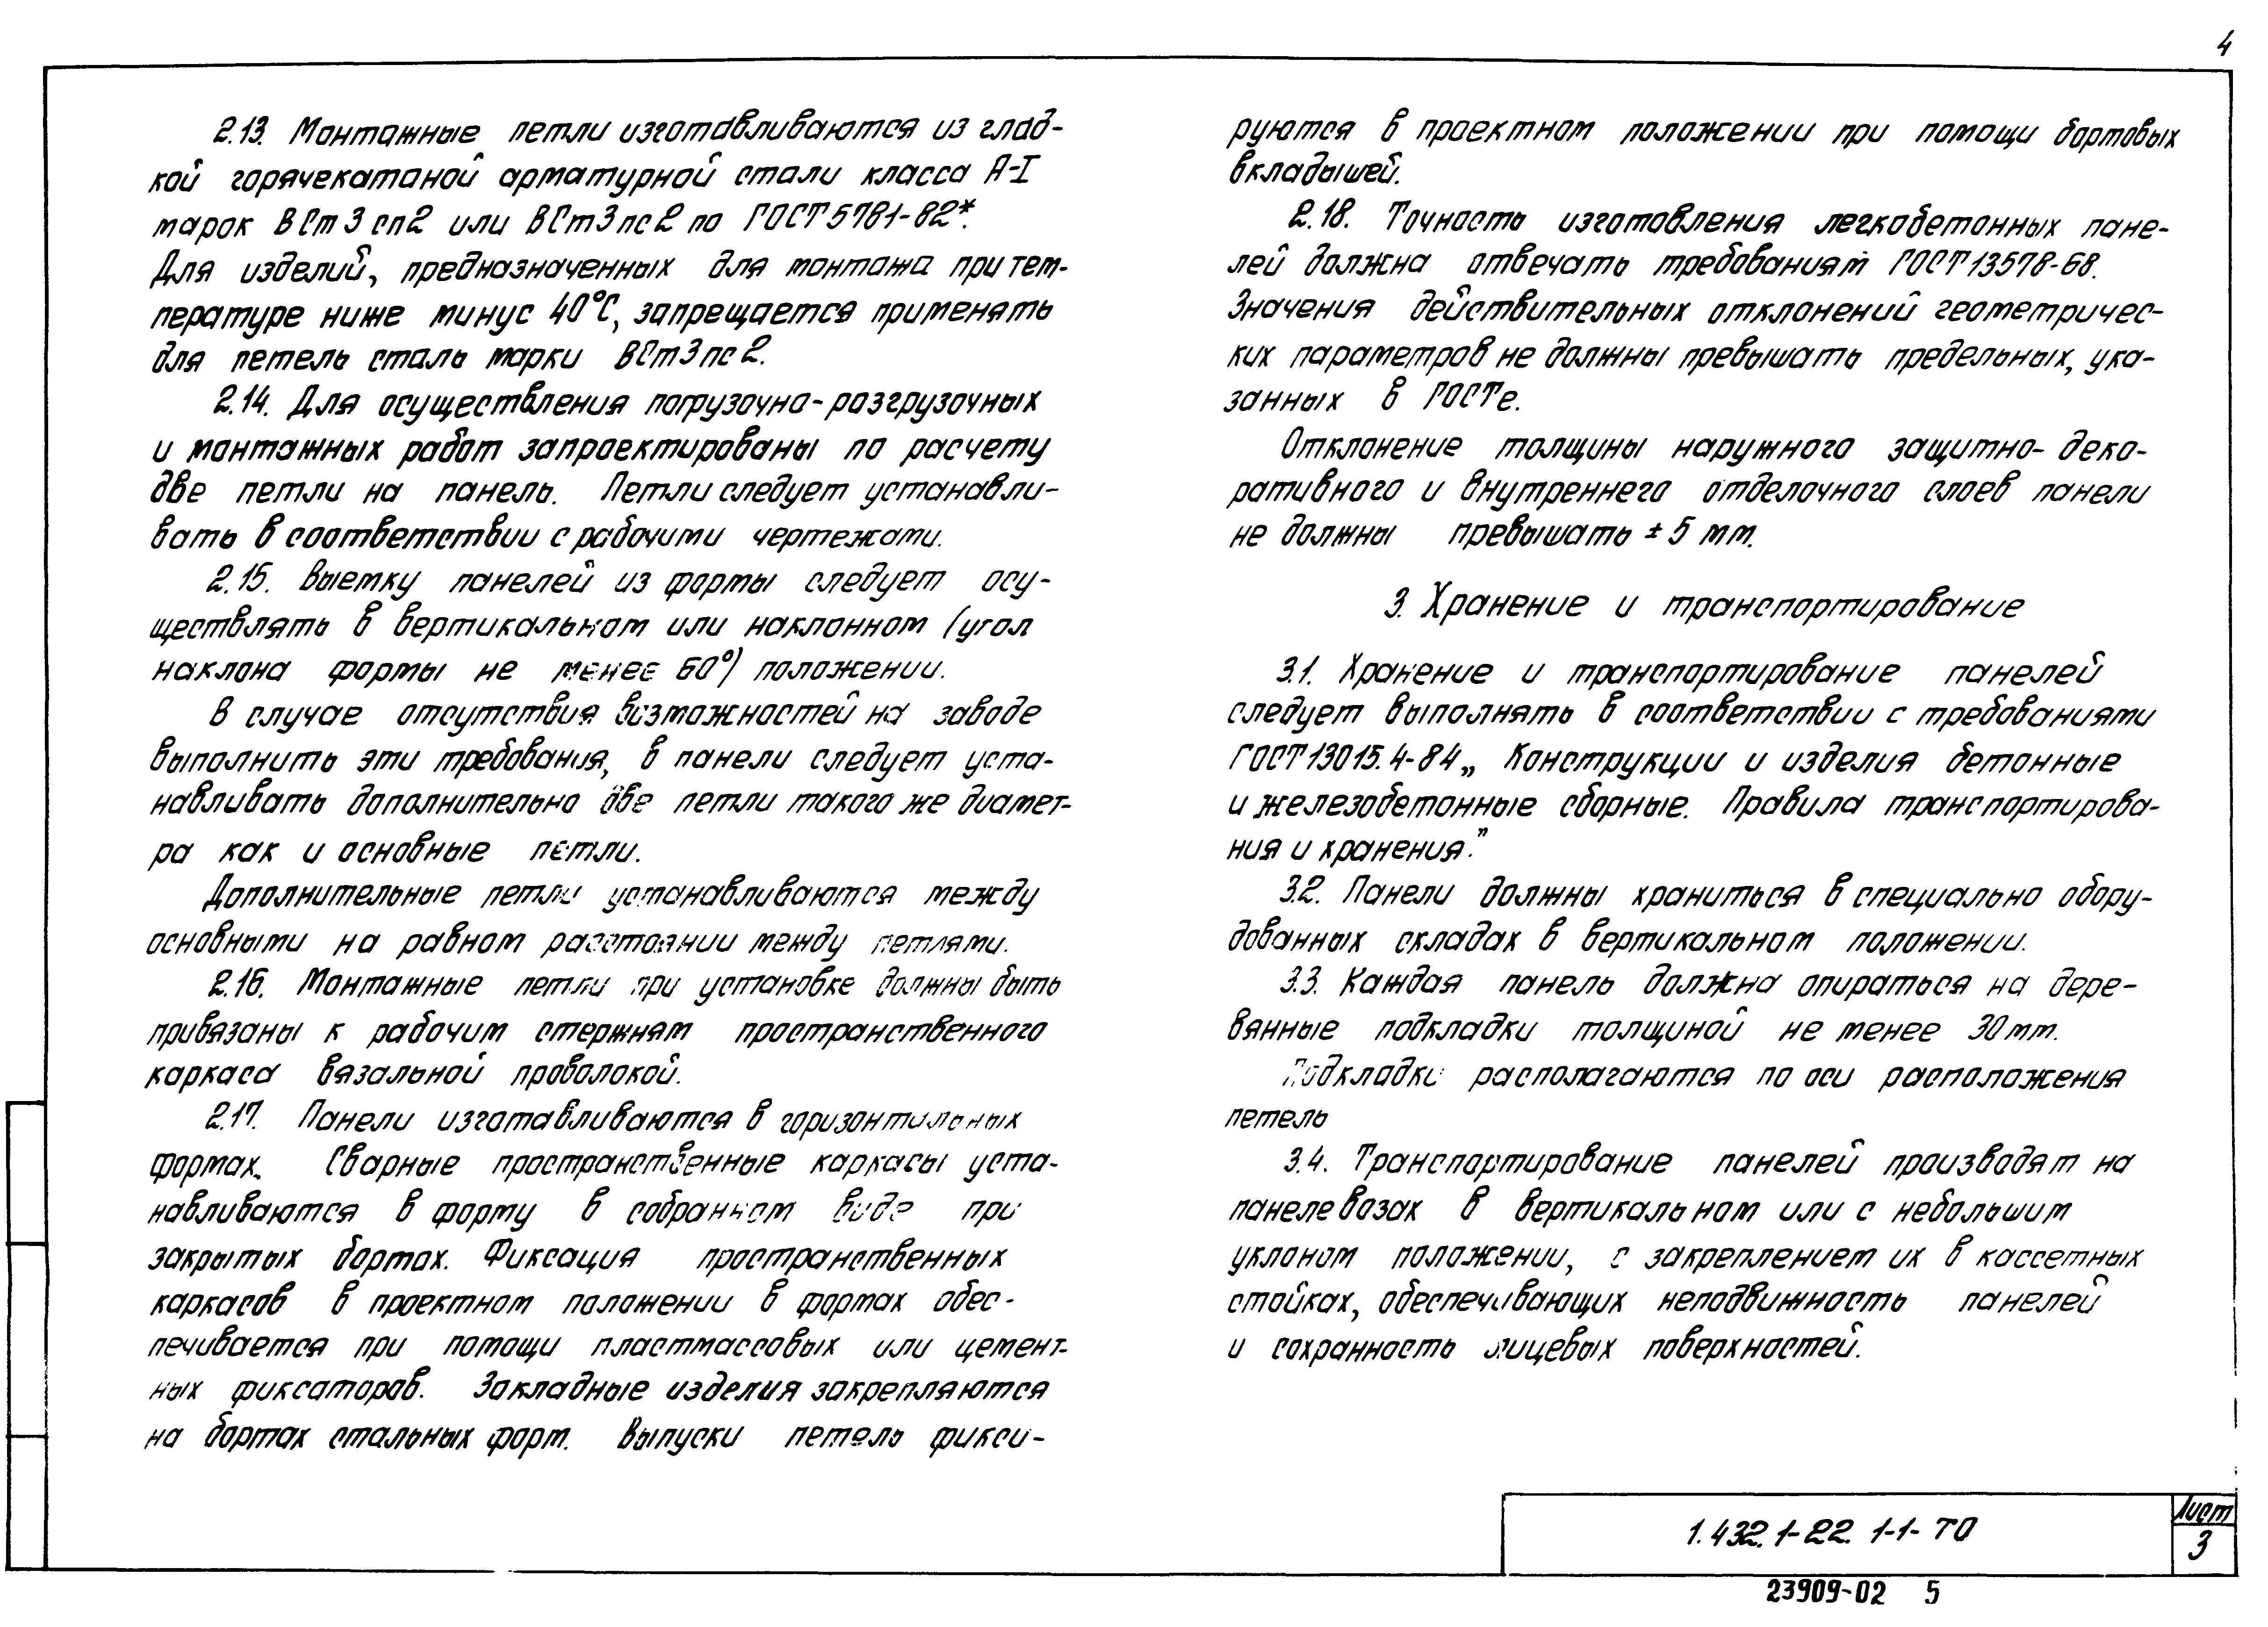 4
2.13. Монтажные петли изготавливаются из глад-
кой горячекатаной арматурной стали класса А-I
марок ВСт3сп2 или ВСт3пс2 по ГОСТ 5781-82*.
Для изделий, предназначенных для монтажа при тем-
пературе ниже минус 40°С, запрещается применять
для петель сталь марки ВСт3пс2.
2.14. Для осуществления погрузочно-разгрузочных
и монтажных работ запроектированы по расчету
две петли на панель. Петли следует устанавли-
вать в соответствии с рабочими чертежами.
2.15. Выемку панелей из формы следует осу-
ществлять в вертикальном или наклонном (угол
наклона формы не менее 60°) положении.
В случае отсутствия возможностей на заводе
выполнить эти требования, в панели следует уста-
навливать дополнительно две петли такого же диамет-
ра как и основные петли.
Дополнительные петли устанавливаются между
основными на равном расстоянии между петлями.
2.16. Монтажные петли при установке должны быть
привязаны к рабочим стержням пространственного
каркаса вязальной проволокой.
2.17. Панели изготавливаются в горизонтальных
формах. Сварные пространственные каркасы уста-
навливаются в форму в собранном виде при
закрытых бортах. Фиксация пространственных
каркасов в проектном положении в формах обес-
печивается при помощи пластмассовых или цемент-
ных фиксаторов. Закладные изделия закрепляются
на бортах стальных форм. Выпуски петель фикси-
руются в проектном положении при помощи бортовых
вкладышей.
2.18. Точность изготовления легкобетонных пане-
лей должна отвечать требованиям ГОСТ 13578-68.
Значения действительных отклонений геометричес-
ких параметров не должны превышать предельных, ука-
занных в ГОСТе.
Отклонение толщины наружного защитно-деко-
ративного и внутреннего отделочного слоев панели
не должны превышать ± 5 мм.
3. Хранение и транспортирование
3.1. Хранение и транспортирование панелей
следует выполнять в соответствии с требованиями
ГОСТ 13015.4-84 „ Конструкции и изделия бетонные
и железобетонные сборные. Правила транспортирова-
ния и хранения."
3.2. Панели должны храниться в специально обору-
дованных складах в вертикальном положении.
3.3. Каждая панель должна опираться на дере-
вянные подкладки толщиной не менее 30 мм.
Подкладки располагаются по оси расположения
петель
3.4. Транспортирование панелей производят на
панелевозах в вертикальном или с небольшим
уклоном положении, с закреплением их в кассетных
стойках, обеспечивающих неподвижность панелей
и сохранность лицевых поверхностей.
1.432.1-22. 1-1- ТО
Лист
3
23909-02 5